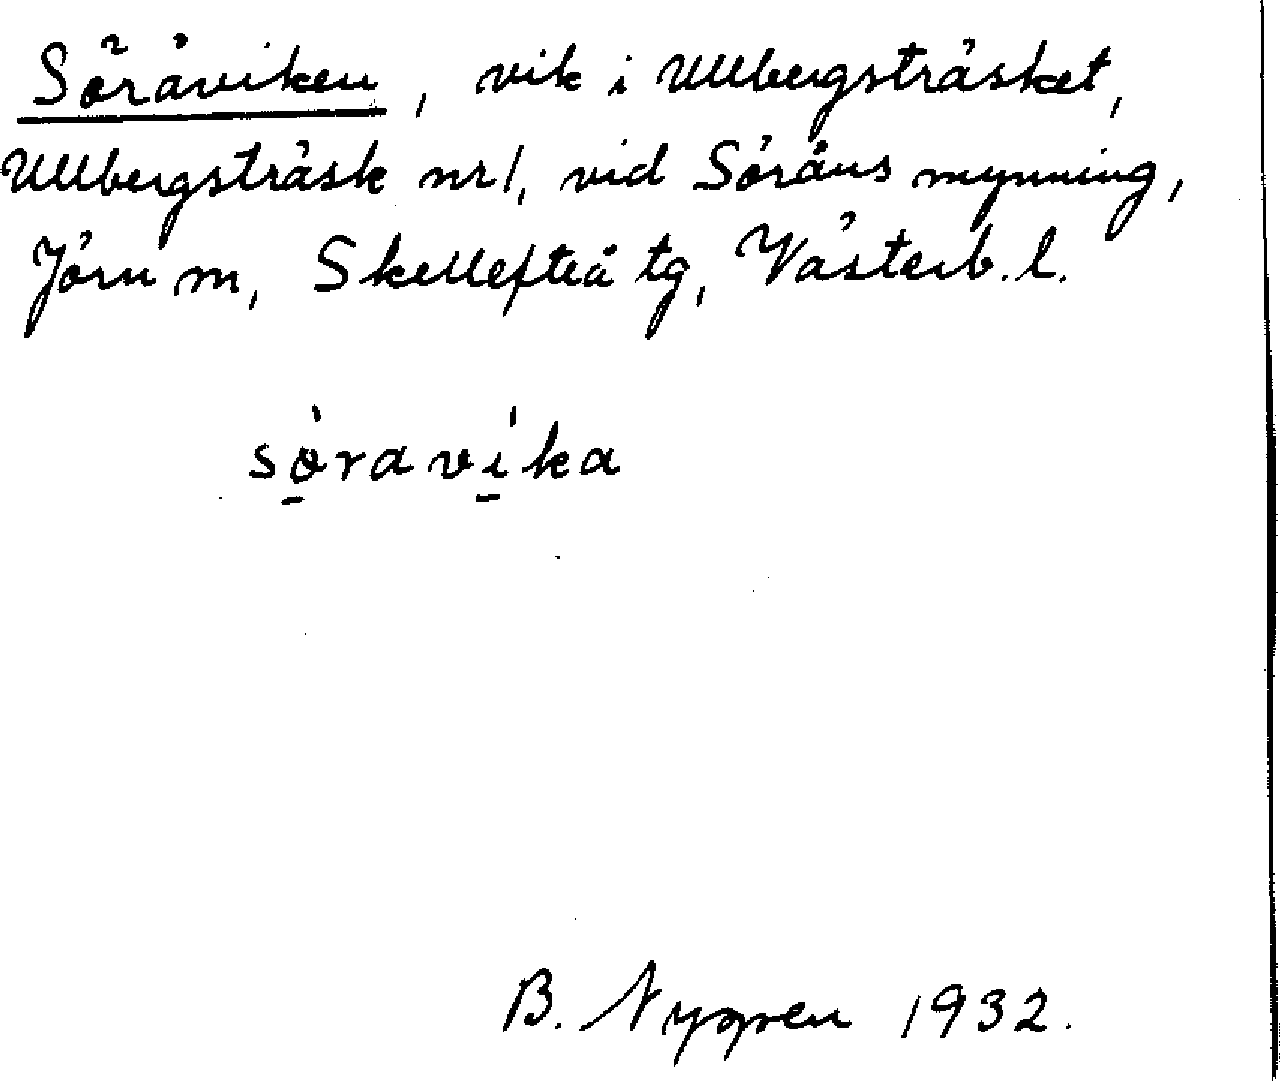 Söråviken, vik i Ullbergsträsket,
Ullbergsträsk nr 1, vid Söråns mynning,
Jörn sn, Skellefteå tg, Västerb. l.
sø̀ravíka
B. Nygren 1932.